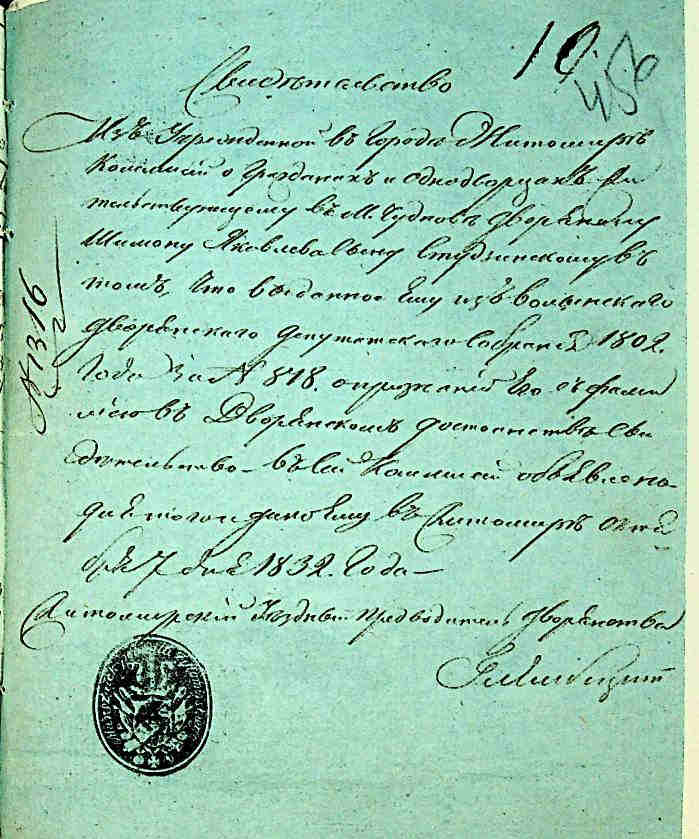 19.
456
Свидѣтельство
Изъ Учрежденной въ Городѣ Житомирѣ
Комиссіи о Гражданахъ и однодворцахъ жи
тельствующему въ М. Чудновѣ дворянину
Шимону Яковлева сыну Студзинскому въ
томъ, что выданное Ему изъ Волынскаго
Дворянскаго Депутатскаго Собранія 1802.
Года за № 818. о признаніи Его съ фами
ліею въ Дворянскомъ достоинствѣ сви
дѣтельство въ сей Комиссіи объявлено
для того и дано Ему въ Житомирѣ Октя
бря 7 дня 1832. Года
Житомирскій Уѣздный предводитель дворянства
№ 1316